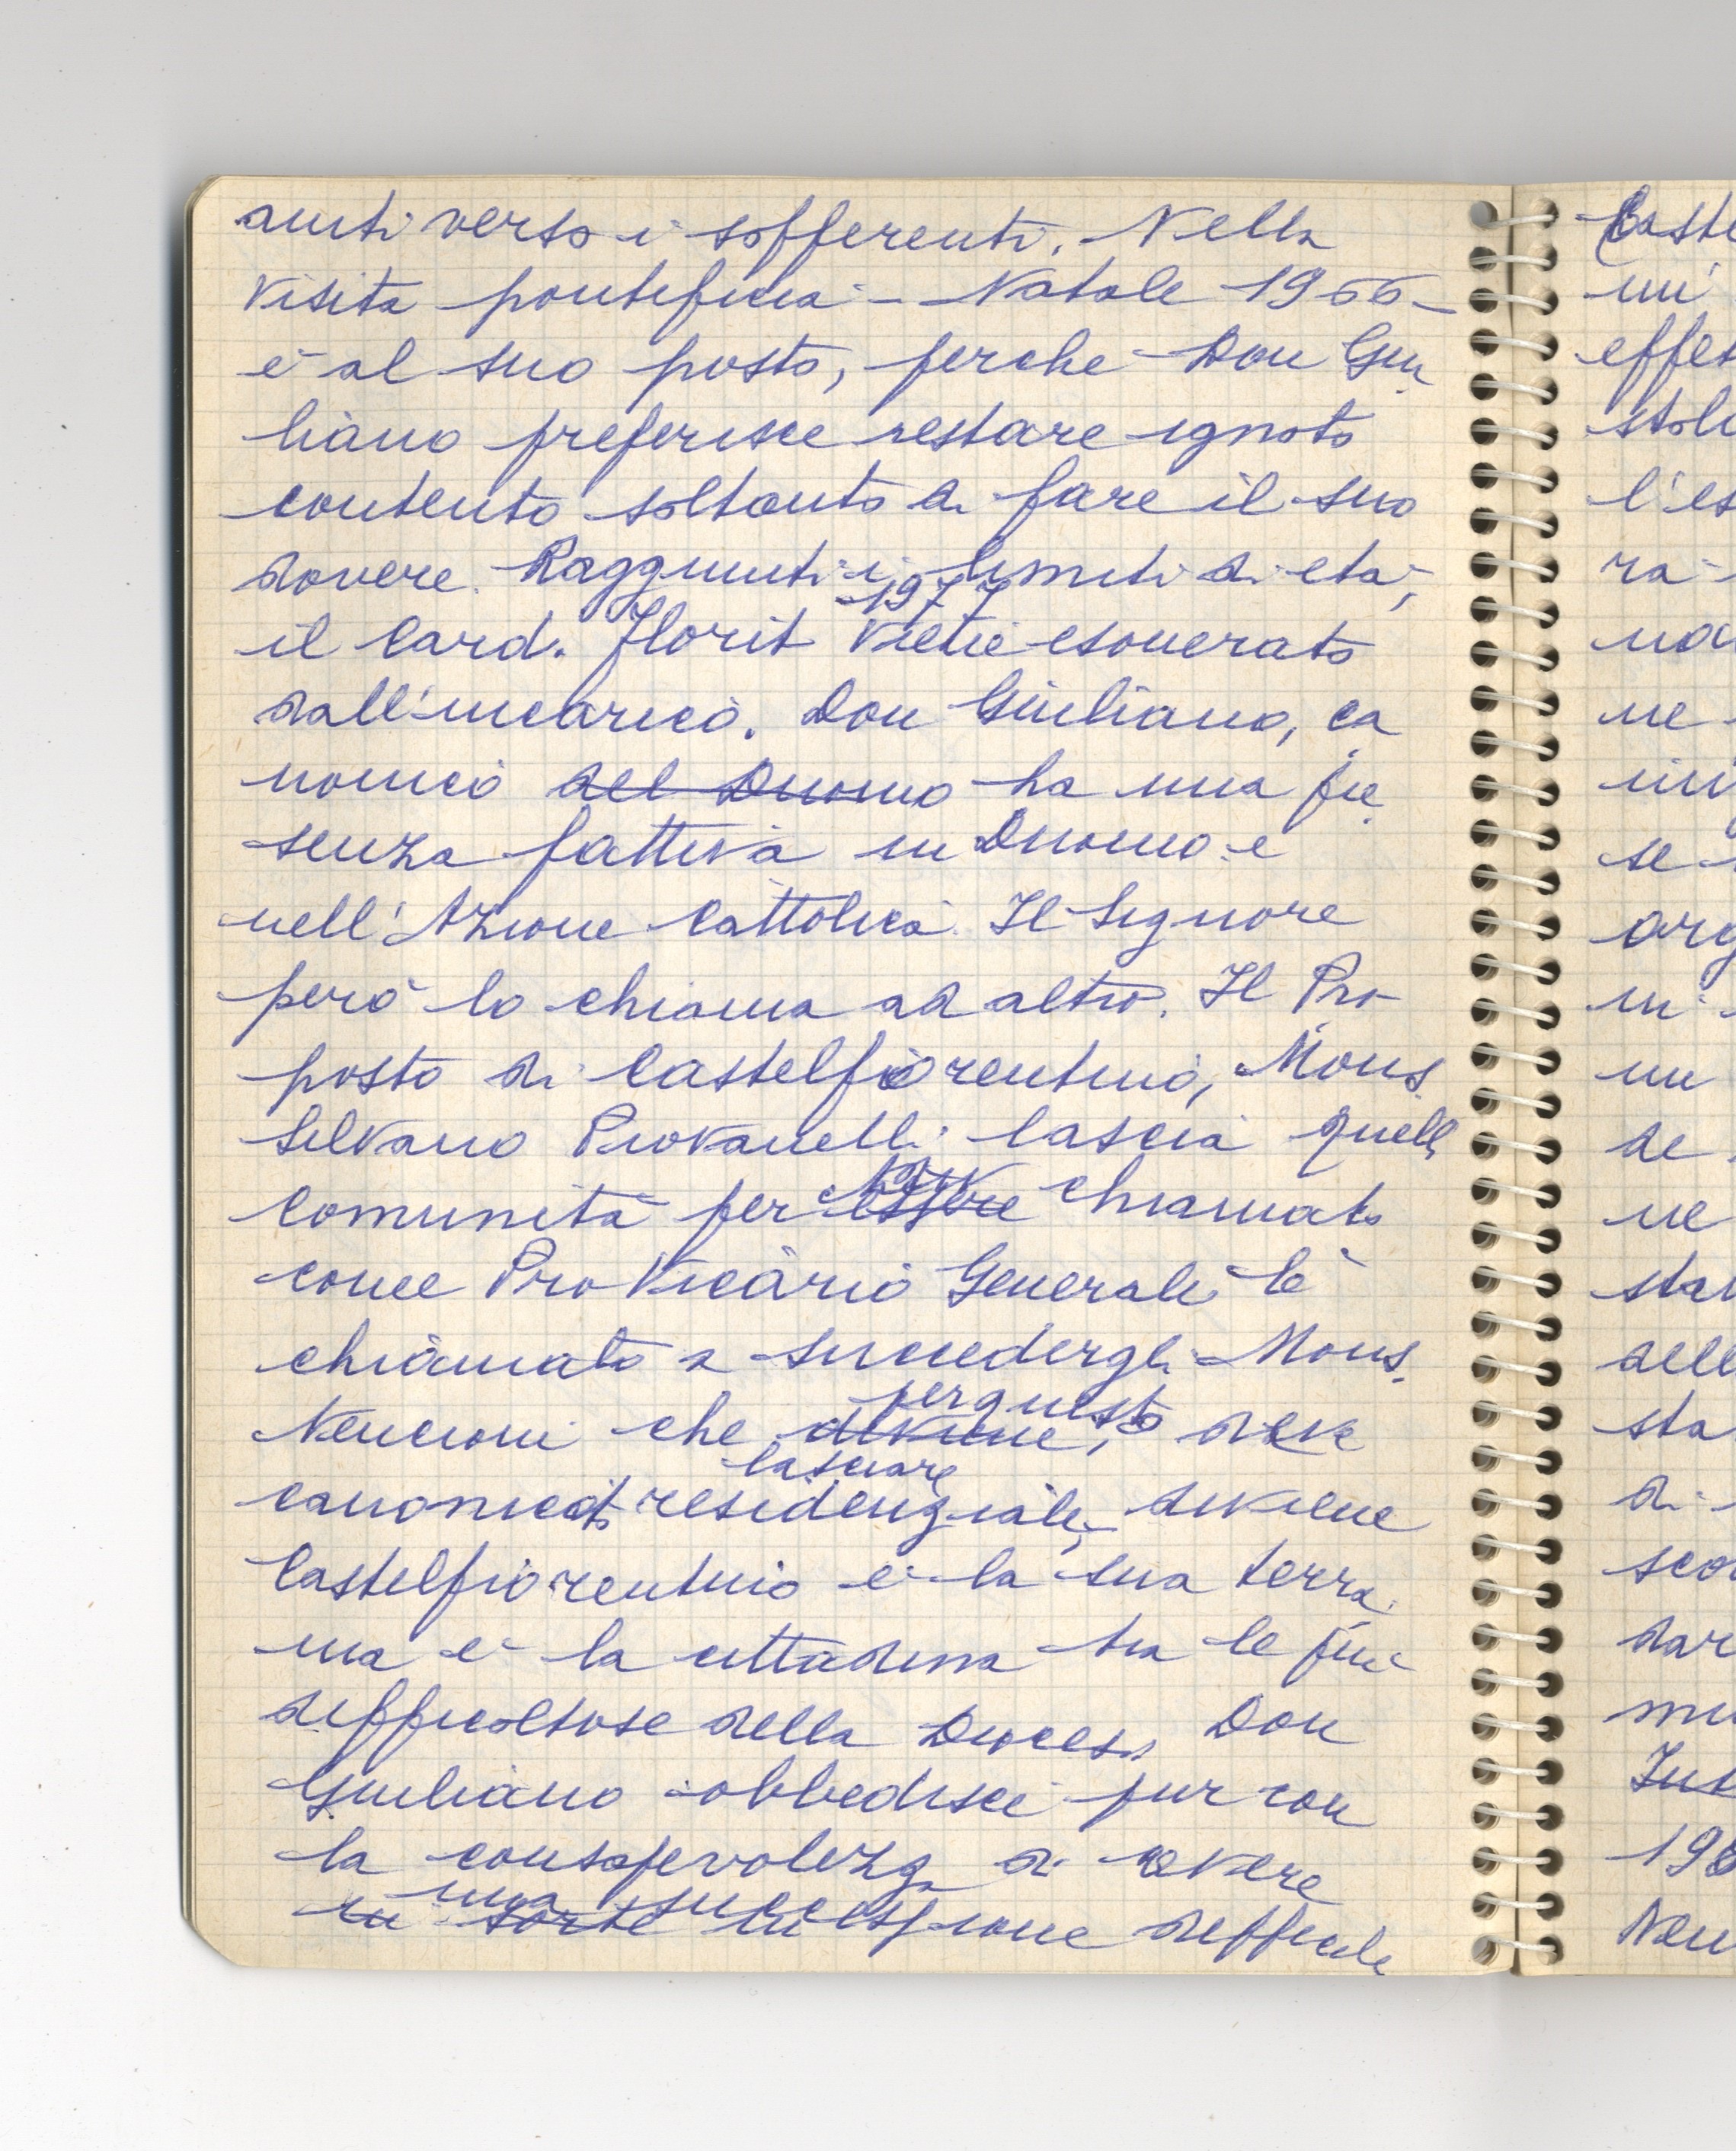 aiuti verso i sofferenti. Nella
visita pontificia - Natale 1966 -
è al suo posto, perche Don Giu
liano preferisce restare ignoto
contento soltanto di fare il suo
dovere. Raggiunti i limiti di età,
-1977
il Card. Florit viene esonerato
dall'incarico. Don Giuliano, ca
nonico del Duomo ha una pre
senza fattiva in Duomo e
nell'Azione Cattolica. Il Signore
però lo chiama ad altro. Il Pro
posto di Castelfiorentino, Mons.
Silvano Piovanelli lascia quella
comunità per essere chiamato
come Pro Vicario Generale è
chiamato a succedergli Mons.
per questo
Nencioni che diviene, deve
lasciare
canonicato residenziale, diviene
Castelfiorentino è la sua terra
ma è la cittadina tra le più
difficoltose della Diocesi. Don
Giuliano obbedisce pur con
la consapevolezza di avere
una successione difficile
in sorte
Caste
un
effet
stoli
l'es
ra
na
ne
se
org
in
un
de
ne
sta
dell
sta
di
sco
dar
198
Nen